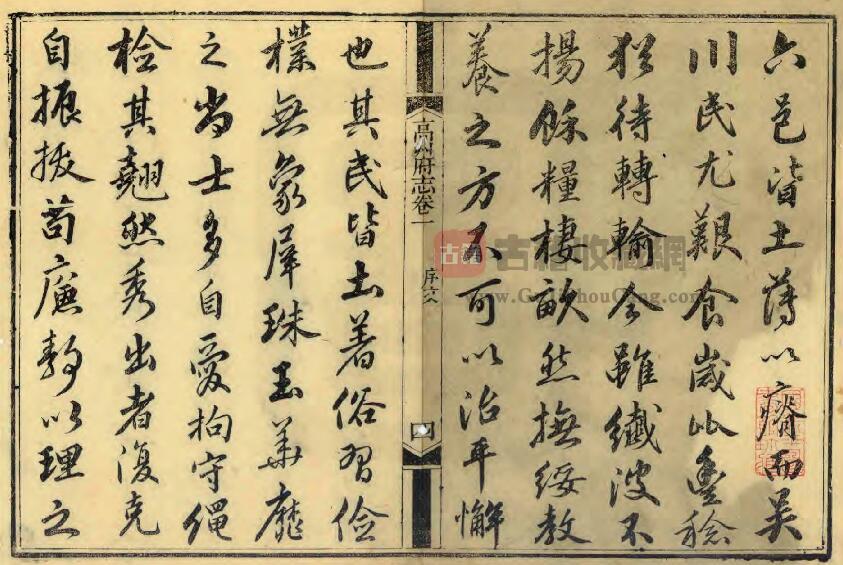 六邑皆土薄以瘠而吴
川民尤艱食歲比豐稔
猶待轉輸今雖纖波不
揚餘糧棲畝然撫綏教
養之方不可以治平懈
高州府志卷一 序 四
也其民皆土著俗習儉
樸無象犀珠玉華靡
之尚士多自愛拘守绳
检其翹然秀出者復克
自振拔苟廉靜以理之
古籍收藏網